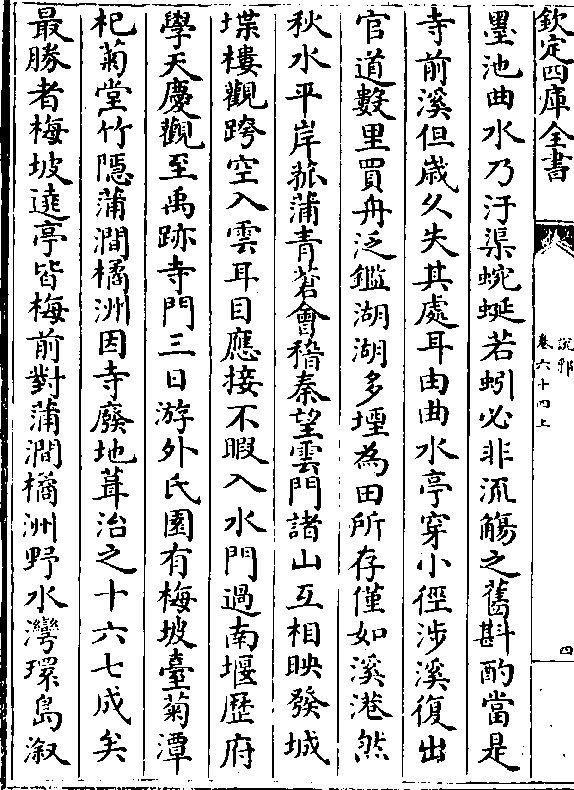 欽定四庫全書
說郛
卷六十四上
四
墨池曲水乃汙渠蜿蜒若蚓必非流觴之舊斟酌當是
寺前溪但歲久失其處耳由曲水亭穿小徑涉溪復出
官道數里買舟泛鑑湖湖多堙為田所存僅如溪港然
秋水平岸菰蒲青蒼會稽秦望雲門諸山互相映發城
堞樓觀跨空入雲耳目應接不暇入水門過南堰歷府
學天慶觀至禹跡寺門三日游外氏園有梅坡臺菊潭
杞菊堂竹隱蒲澗橘洲因寺廢地葺治之十六七成矣
最勝者梅坡遶亭皆梅前對蒲澗橘洲野水灣環島溆